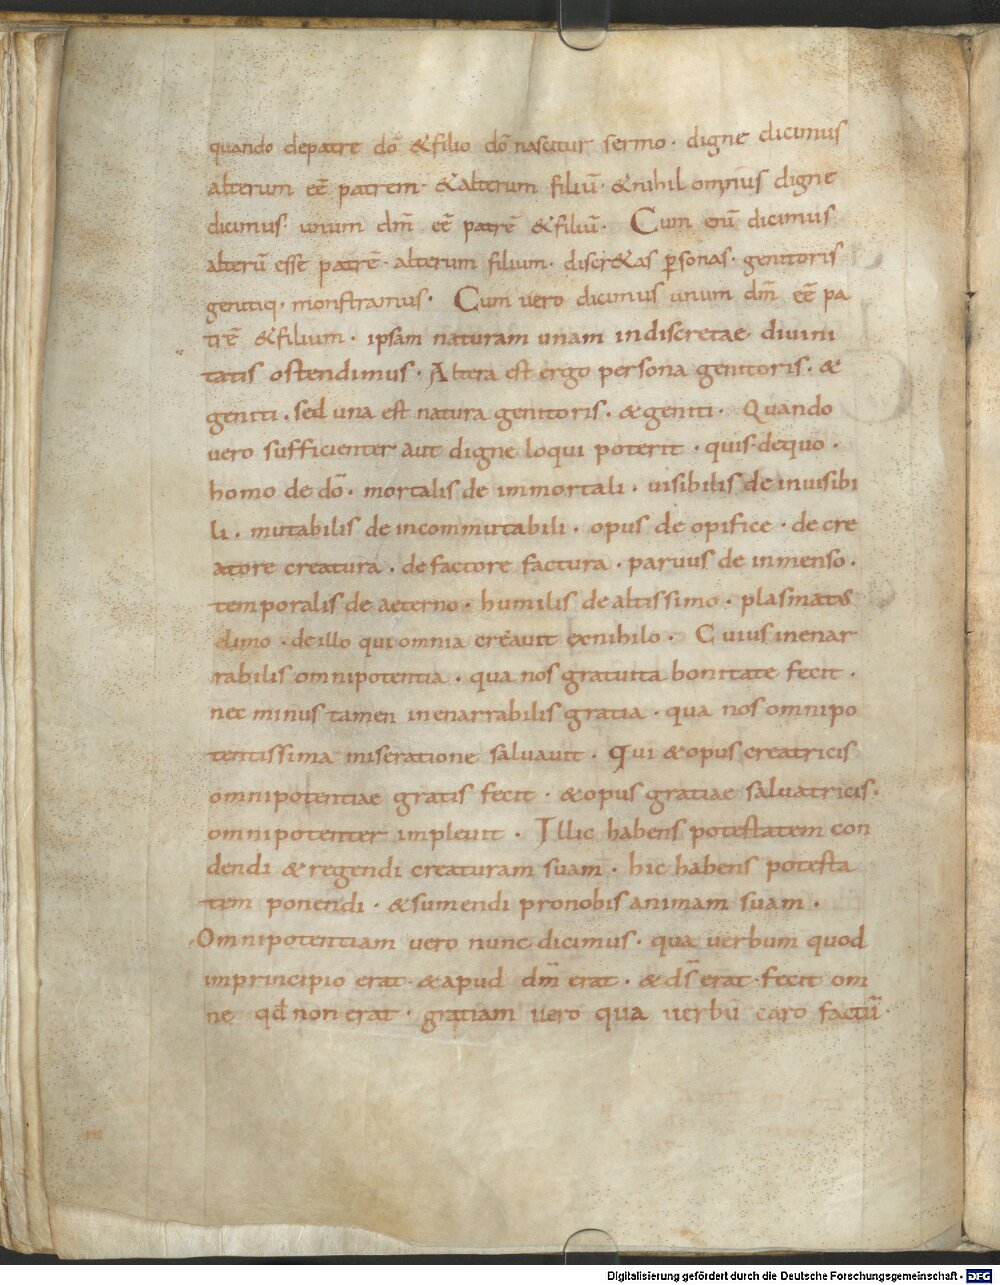 quando depatre dō &filio dō nascitur sermo · digne dicimus
alterum eē patrem · &alterum filiū · &nihilominus digne
dicimus · unum dm̄ eē patrē &filiū · Cum enī dicimus
alterū esse patrē · alterum filium · discr&as p̱sonas · genitoris
genitiq; monstramus · Cum vero dicimus unum dm̄ eē pa
trē &filium · ipsam naturam unam indiscretae divini
tatis ostendimus · Altera est ergo persona genitoris · &
geniti · sed una est natura genitoris · &geniti · Quando
vero sufficienter aut digne loqui poterit · quis dequo ·
homo de dō · mortalis de immortali · visibilis de invisibi
li · mutabilis de incommutabili · opus de opifice · de cre
atore creatura · de factore factura · parvus de inmenso ·
temporalis de aeterno · humilis de altissimo · plasmatus
delimo · de illo qui omnia creavit exnihilo · Cuius inenar
rabilis omnipotentia · qua nos gratuita bonitate fecit ·
nec minus tamen inenarrabilis gratia · qua nos omnipo
tentissima miseratione salvavit · Qui &opus creatricis
omnipotentiae gratis fecit · &opus gratiae salvatricis ·
omnipotenter implevit · Illic habens potestatem con
dendi &regendi creaturam suam · hic habens potesta
tem ponendi · &sumendi pronobis animam suam ·
Omnipotentiam vero nunc dicimus · qua verbum quod
inprincipio erat · &apud dm̄ erat · &ds̄ erat · fecit om
ne qd̄ non erat · gratiam vero qua verbū caro factū ·
Digitalisierung gefördert durch die Deutsche Forschungsgemeinschaft - DFG